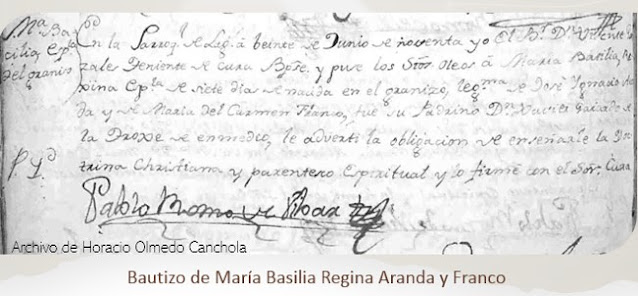 Mª Ba
cilia, Espla
del granizo
En la Parroq. de á beinte de Junio de noventa yo El Br. Dn. Vicente
zales Teniente de Cura Bapte. y puse los Stos oleos á Maria Basilia, Re
gina Espla de siete dias de nacida en el granizo, legma de Jose Ignacio Aran
da y de Maria del Carmen Franco, fue su Padrino Dn. Xavier de
la Troxe de enmedio, le adverti la obligacion de enseñarle la Doc
trina Christiana y parentesco Espiritual y lo firmé con el Sor. Cura
Pablo
Archivo de Horacio Olmedo Canchola
Bautizo de María Basilia Regina Aranda y Franco